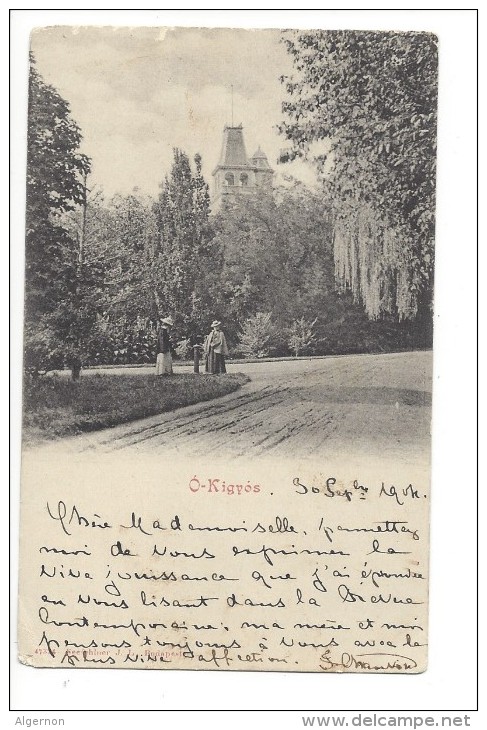 Ó-Kigyós
30 Sepbre 1904.
Chère Mademoiselle, permettez
moi de vous exprimer la
vive jouissance que j'ai éprouvée
en vous lisant dans la Revue
Contemporaine; ma mère et moi
pensons toujours à vous avec la
plus vive affection.
J. L. Budapest
Algernon
http://www.delcampe.net